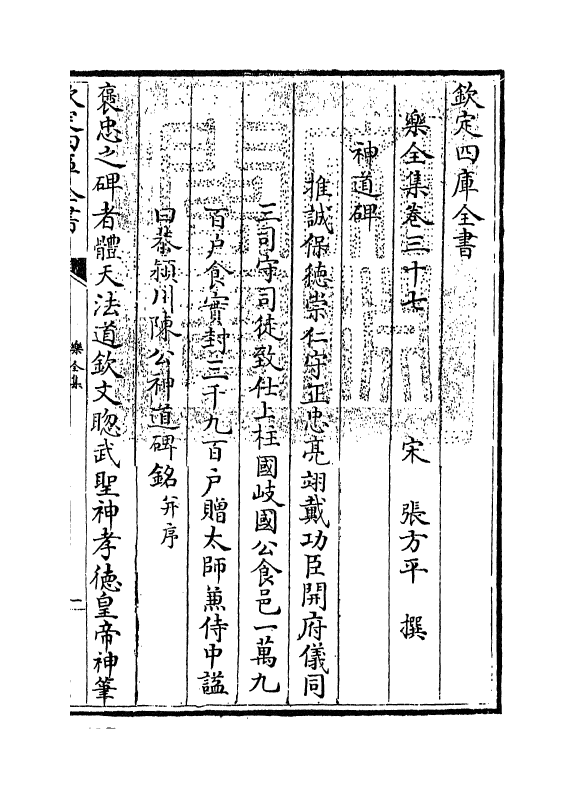 欽定四庫全書
樂全集卷三十七　宋　張方平　撰
神道碑
推誠保徳崇仁守正忠亮翊戴功臣開府儀同
三司守司徒致仕上柱國岐國公食邑一萬九
百户食實封三千九百户贈太師兼侍中諡
曰恭潁川陳公神道碑銘并序
褒忠之碑者體天法道欽文聰武聖神孝徳皇帝神筆
欽定四庫全書
樂全集
一